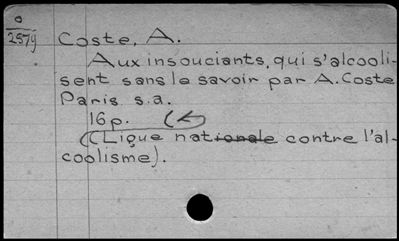 o
2579
Coste, A.
Aux insouciants, qui s'alcooli-
sent sans le savoir par A. Coste
Paris s.a.
16 p.
(Ligue nationale contre l'al-
coolisme).